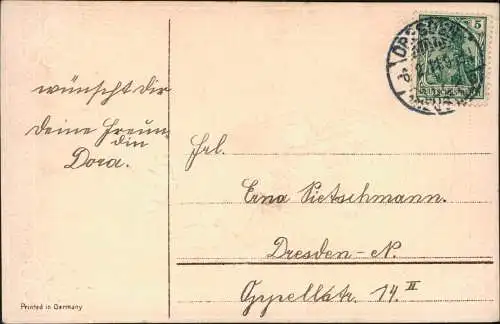 wünscht dir
Deine Freun
din
Dora.
Printed in Germany
Frl.
Erna Pietschmann.
Dresden-N.
Oppellstr. 14 II
5
DRESDEN